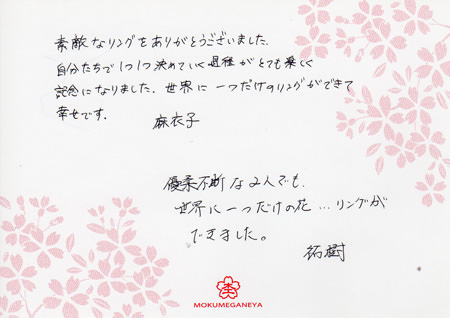 素敵なリングをありがとうございました。
自分たちで1つ1つ決めていく過程がとても楽しく
記念になりました。世界に一つだけのリングができて
幸せです。
麻衣子
優柔不断な2人でも、
世界に一つだけの花…リングが
できました。
祐樹
MOKUMEGANEYA